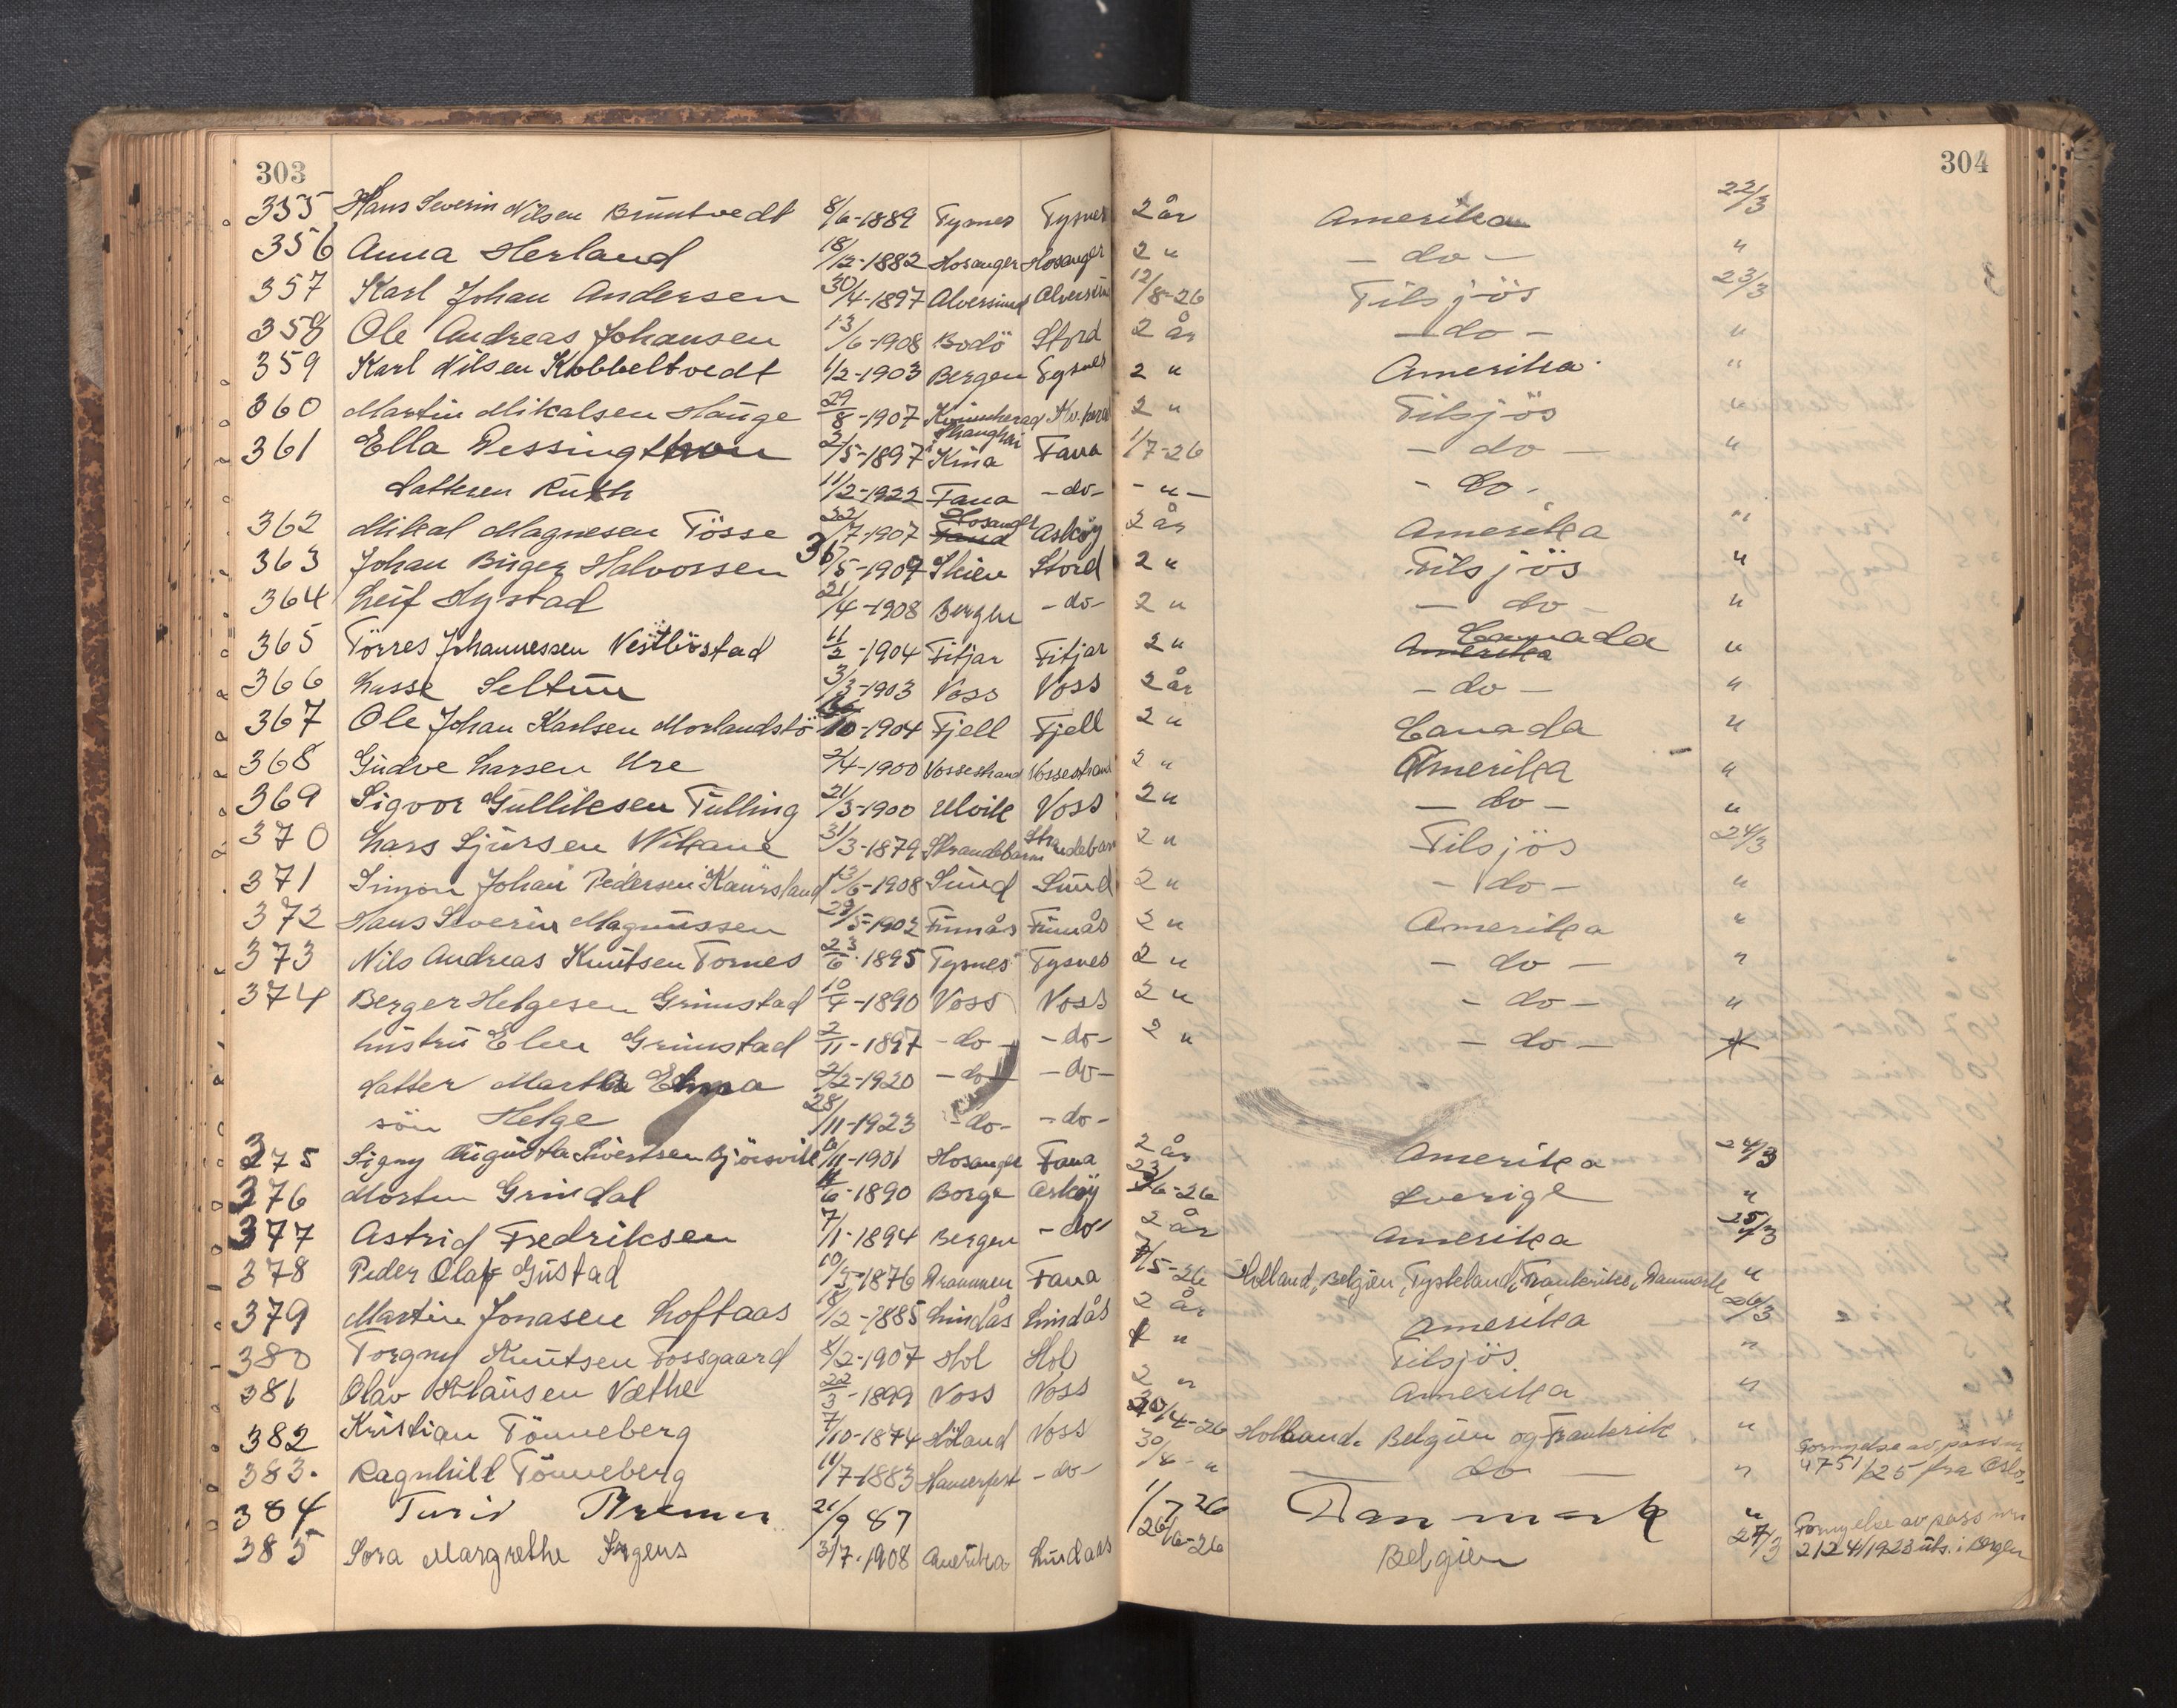 303 304
355 Hans Severin Nilsen Bruntvedt 8/6-1889 Tysnes Tysnes 2 år Amerika 22/3
356 Anna Herland 18/12-1882 Hosanger Hosanger 2 " - do - "
357 Karl Johan Andersen 30/4-1897 Alversund Alversund 12/8-26 Tilsjös 23/3
358 Ole Andreas Johansen 13/6-1908 Bodö Stord 2 år - do - "
359 Karl Nilsen Kobbeltvedt 6/2-1903 Bergen Tysnes 2 " Amerika "
360 Martin Mikalsen Hauge 29/8-1907 Kvinnherad Kv.herad 2 " Tilsjös "
361 Ella Dessingthon 2/5-1897 Shanghai Kina Fana 1/7-26 - do - "
datteren Ruth 11/2-1922 Fana - do - - " - - do -
362 Mikal Magnesen Tösse 22/7-1907 Hosanger Asköy 2 år Amerika "
363 Johan Birger Halvorssen /5-1909 Skien Stord 2 " Tilsjös "
364 Leif Hystad 21/4-1908 Bergen - do - 2 " - do - "
365 Törres Johannessen Vestböstad 11/2-1904 Fitjar Fitjar 2 " Amerika Canada "
366 Lasse Seltun 3/3-1903 Voss Voss 2 år - do - "
367 Ole Johan Karlsen Morlandstö /10-1904 Fjell Fjell 2 " Canada "
368 Gudve Larsen Ure 2/4-1900 Vossestrand Vossestrand 2 " Amerika "
369 Sigvor Gulliksen Tulling 21/3-1900 Ulvik Voss 2 " - do - "
370 Lars Sjursen Vikane 31/3-1879 Strandebarm Strandebarm 2 " Tilsjös 24/3
371 Simon Johan Pedersen Kaursland 13/6-1908 Sund Sund 2 " - do - "
372 Hans Severin Magnussen 29/5-1902 Finnås Finnås 2 " Amerika "
373 Nils Andreas Knutsen Tornes 23/6-1895 Tysnes Tysnes 2 " - do - "
374 Berger Helgesen Grimstad 10/4-1890 Voss Voss 2 " - do - "
hustru Elen Grimstad 2/11-1897 - do - - do - 2 " - do -
datter Martha Emma 2/2-1920 - do - - do -
sön Helge 28/11-1923 - do - - do -
375 Signy Augusta Sivertsen Björsvik 6/11-1901 Hosanger Fana 2 år Amerika 24/3
376 Morten Grindal /6-1890 Borge Asköy 23/6-26 Sverige "
377 Astrid Fredriksen 7/1-1894 Bergen - do - 2 år Amerika 25/3
378 Peder Olaf Gustad 10/5-1876 Drammen Fana /5-26 Holland, Belgien, Tyskland, Frankrike, Danmark "
379 Martin Jonasen Loftaas 18/2-1885 Lindås Lindås 2 år Amerika 26/3
380 Torgny Knutsen Fossgaard 8/2-1907 Hol Hol " Tilsjös "
381 Olav Klausen Væthe 22/3-1899 Voss Voss 2 " Amerika "
382 Kristian Tönneberg 7/10-1874 Höland Voss 30/4-26 Holland. Belgien og Frankrik "
383. Ragnhild Tönneberg 11/7-1883 Hamerfest - do - 30/4 - " - do - " Fornyelse av pass nr 4751/25 fra Oslo.
384 Turid 21/9 87 1/7 26 Danmark "
385 Sora Margrethe Irgens 3/7-1908 Amerika Lindaas 26/6-26 Belgien 27/3 Fornyelse av pass nr 2124/1923 uts. i Bergen